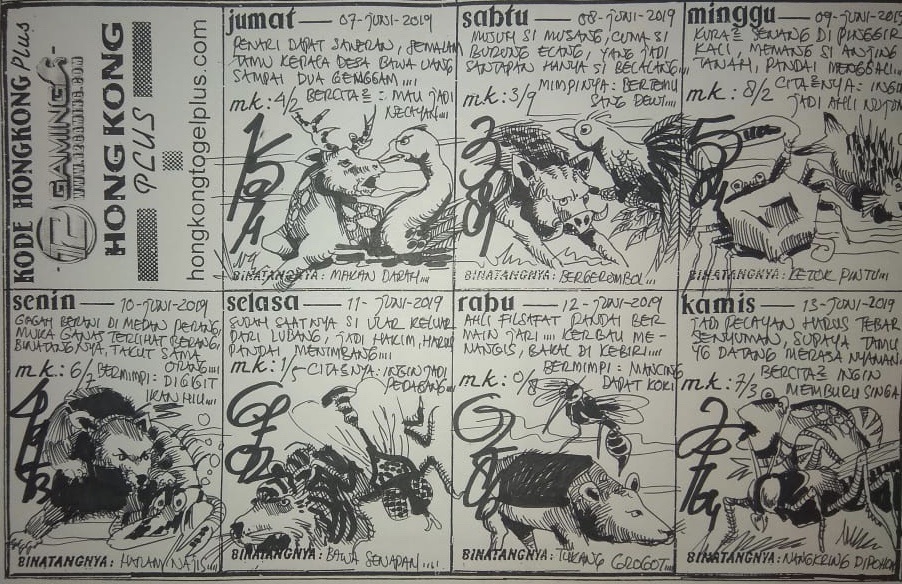 KODE HONGKONG Plus
GAMING
HONGKONG
PLUS
hongkongtogelplus.com
jumat — 07-JUNI-2019
PENARI DAPAT SAWERAN, SEMALAM
TAMU KEPALA DESA BAWA UANG
SAMPAI DUA GENGGAM....
mk: 4/2 BERCITA2 : MAU JADI
NELAYAN....
BINATANGNYA: MAKAN DARAH....
sabtu — 08-JUNI-2019
MUSUH SI MUSANG, CUMA SI
BURUNG ELANG, YANG JADI
SANTAPAN HANYA SI BELALANG....
mk: 3/9 MIMPINYA: BERTEMU
SANG DEWI....
BINATANGNYA: BERGEROMBOL....
minggu — 09-JUNI-2019
KURA2 SENANG DI PINGGIR
KALI, MEMANG SI ANJING
TANAH, PANDAI MENGGALI....
mk: 8/2 CITA2NYA: INGIN
JADI AHLI NUJUM
BINATANGNYA: KETOK PINTU....
senin — 10-JUNI-2019
GAGAH BERANI DI MEDAN PERANG
MUKA GANAS TERLIHAT BERANG,
BINATANGNYA, TAKUT SAMA
ORANG....
mk: 6/2 BERMIMPI: DIGIGIT
IKAN HIU....
BINATANGNYA: HARAM NAJIS....
selasa — 11-JUNI-2019
SUDAH SAATNYA SI ULAR KELUAR
DARI LUBANG, JADI HAKIM, HARUS
PANDAI MENIMBANG....
mk: 1/5 CITA2NYA: INGIN JADI
PEDAGANG....
BINATANGNYA: BAWA SENAPAN....
rabu — 12-JUNI-2019
AHLI FILSAFAT PANDAI BER
MAIN JARI.... KERBAU ME-
NANGIS, BAKAL DI KEBIRI....
mk: 0/8 BERMIMPI: MANCING
DAPAT KOKI
BINATANGNYA: TUKANG GROGOT....
kamis — 13-JUNI-2019
JADI PELAYAN HARUS TEBAR
SENYUMAN, SUPAYA TAMU
YG DATANG MERASA NYAMAN
mk: 7/3 BERCITA2 INGIN
MEMBURU SINGA
BINATANGNYA: NANGKRING DIPOHON